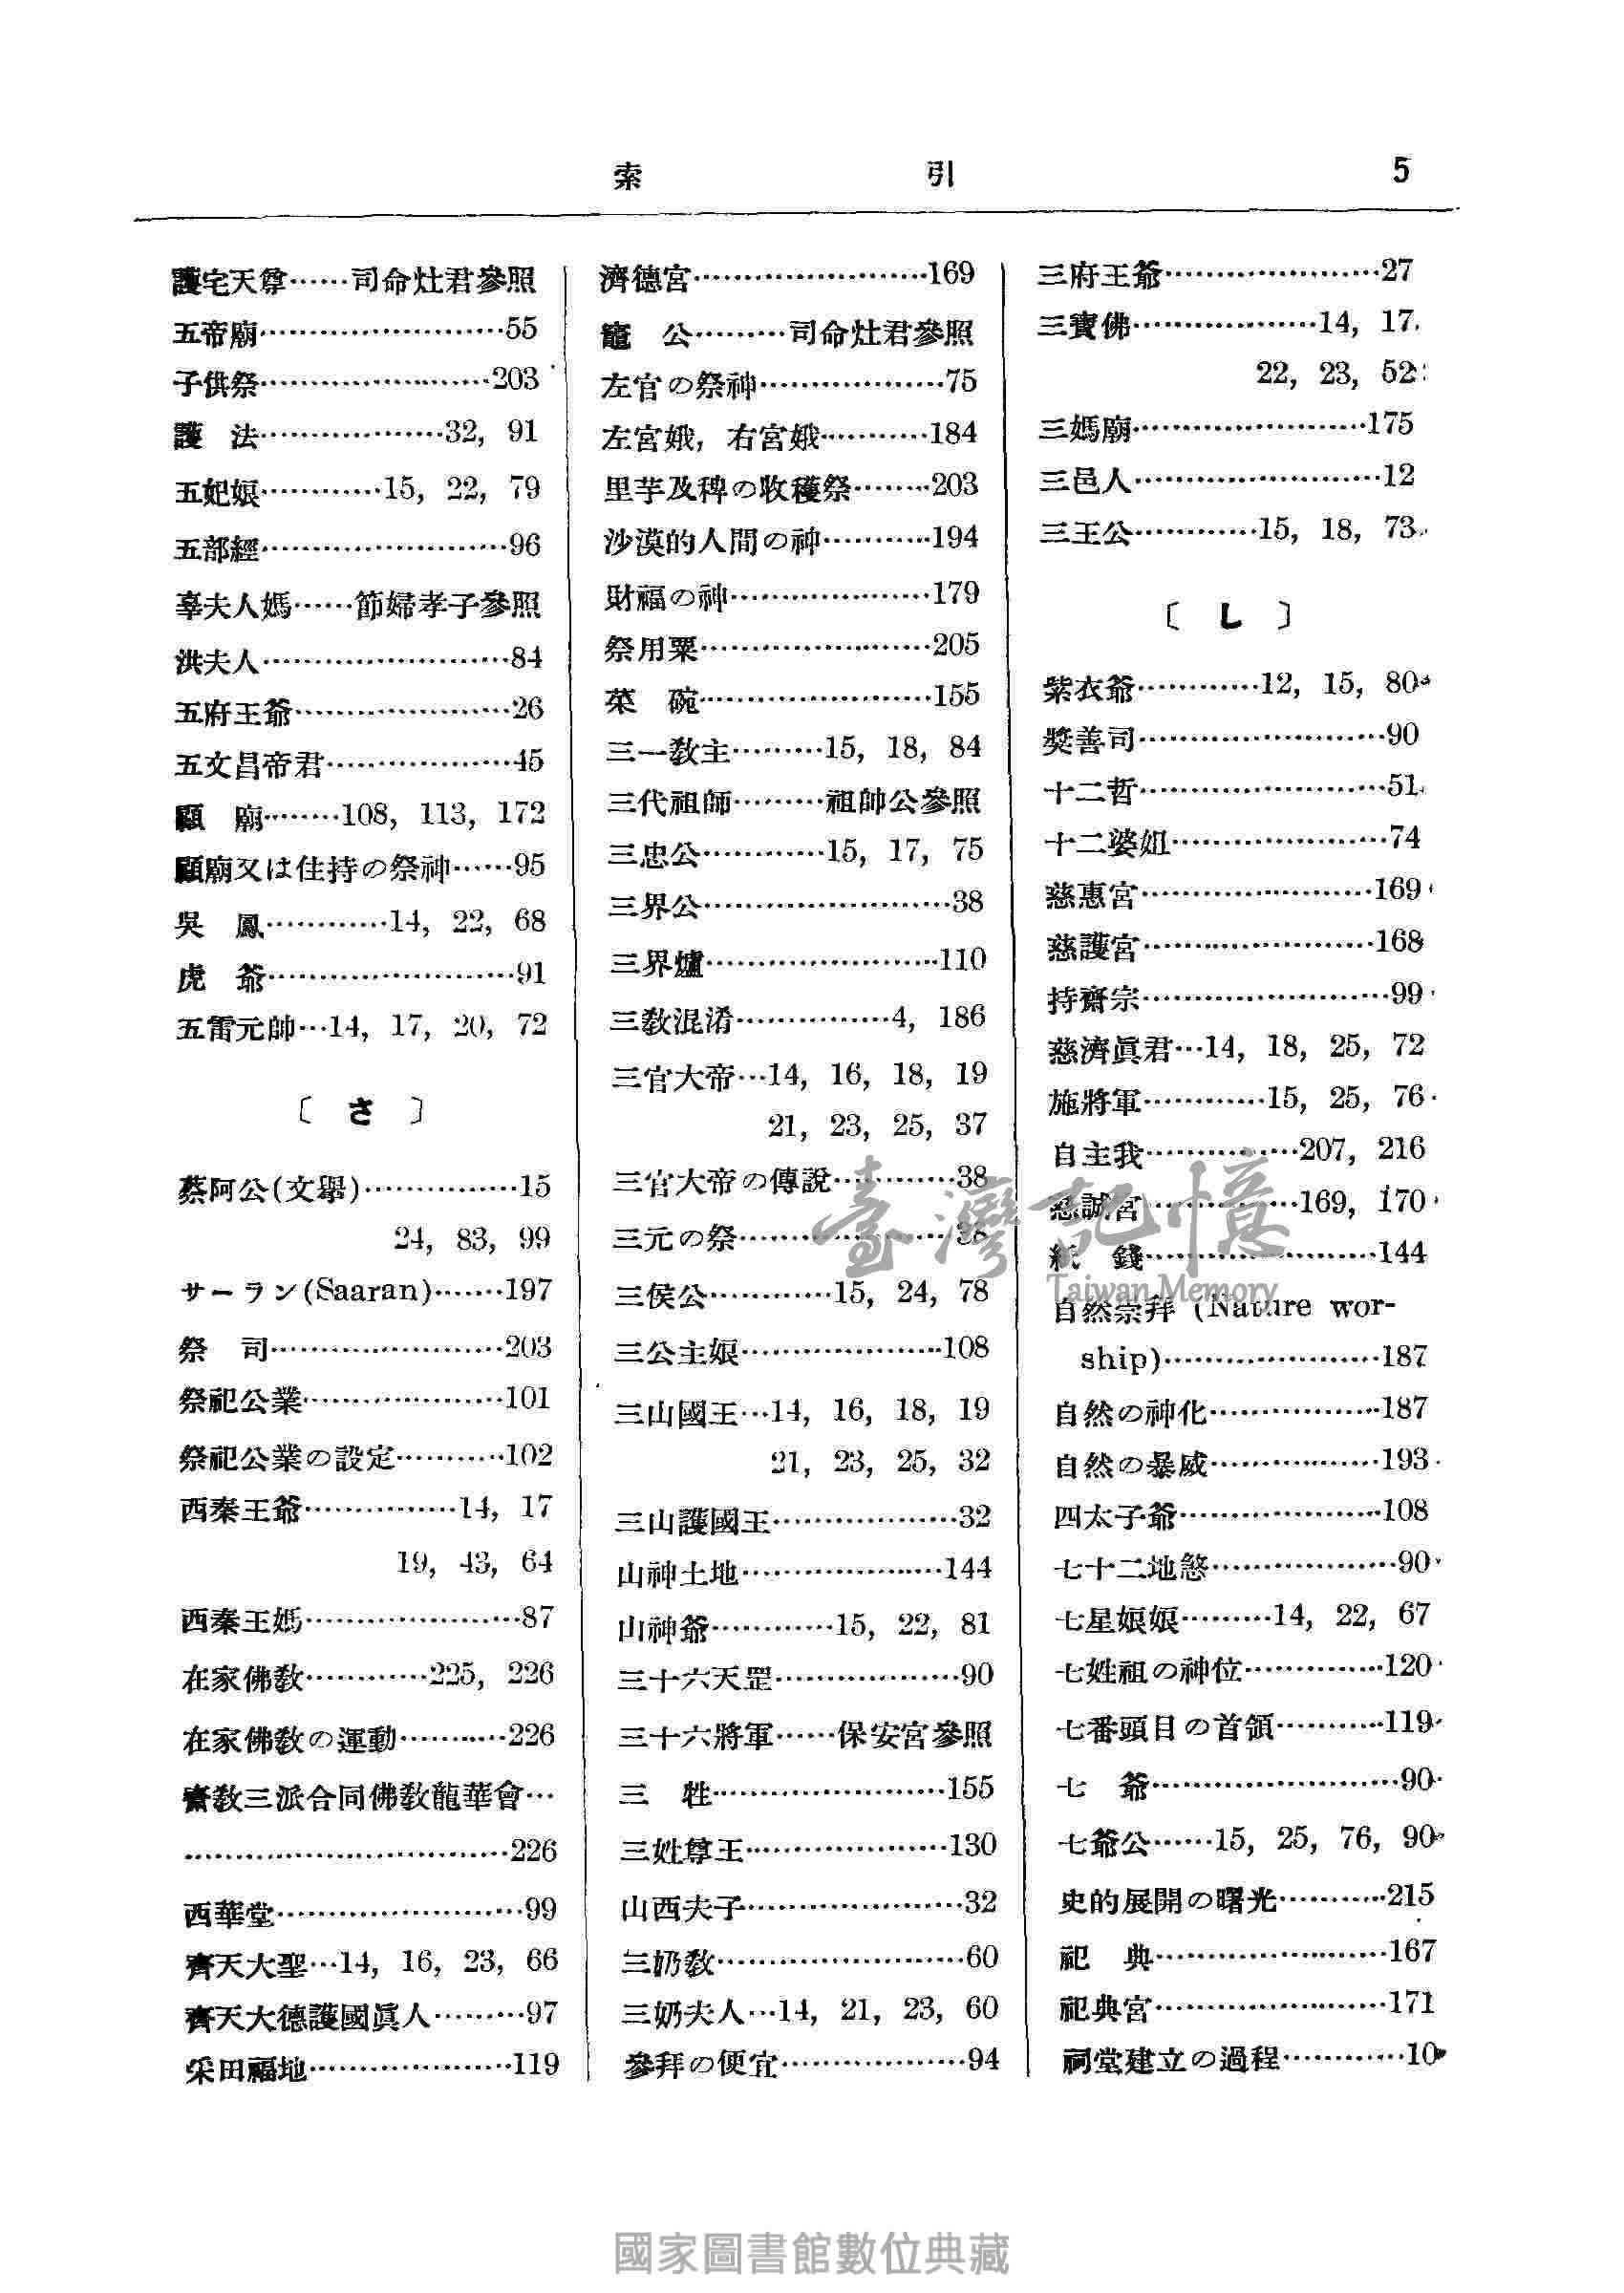 索引 5
護宅天尊……司命灶君參照
五帝廟……………………55
子供祭……………………203
護　法………………32, 91
五妃娘…………15, 22, 79
五部經……………………96
辜夫人媽……節婦孝子參照
洪夫人……………………84
五府王爺…………………26
五文昌帝君………………45
顧　廟………108, 113, 172
顧廟又は住持の祭神……95
吳　鳳…………14, 22, 68
虎　爺……………………91
五雷元帥…14, 17, 20, 72
〔　さ　〕
蔡阿公(文擧)……………15
24, 83, 99
サーラン(Saaran)………197
祭　司……………………203
祭祀公業…………………101
祭祀公業の設定…………102
西秦王爺……………14, 17
19, 43, 64
西秦王媽…………………87
在家佛敎…………225, 226
在家佛敎の運動…………226
齋敎三派合同佛敎龍華會…
……………………………226
西華堂……………………99
齊天大聖…14, 16, 23, 66
齊天大德護國眞人………97
采田福地…………………119
濟德宮……………………169
竈　公………司命灶君參照
左官の祭神………………75
左宮娥, 右宮娥…………184
里芋及稗の收穫祭………203
沙漠的人間の神…………194
財福の神…………………179
祭用粟……………………205
菜　碗……………………155
三一敎主………15, 18, 84
三代祖師………祖師公參照
三忠公…………15, 17, 75
三界公……………………38
三界爐……………………110
三敎混淆……………4, 186
三官大帝…14, 16, 18, 19
21, 23, 25, 37
三官大帝の傳說…………38
三元の祭…………………38
三侯公…………15, 24, 78
三公主娘…………………108
三山國王…14, 16, 18, 19
21, 23, 25, 32
三山護國王………………32
山神土地…………………144
山神爺…………15, 22, 81
三十六天罡………………90
三十六將軍……保安宮參照
三　牲……………………155
三姓尊王…………………130
山西夫子…………………32
三奶敎……………………60
三奶夫人…14, 21, 23, 60
參拜の便宜………………94
三府王爺…………………27
三寶佛………………14, 17,
22, 23, 52
三媽廟……………………175
三邑人……………………12
三王公…………15, 18, 73
〔　し　〕
紫衣爺…………12, 15, 80
奬善司……………………90
十二哲……………………51
十二婆姐…………………74
慈惠宮……………………169
慈護宮……………………168
持齋宗……………………99
慈濟眞君…14, 18, 25, 72
施將軍…………15, 25, 76
自主我……………207, 216
慈諴宮……………169, 170
紙　錢……………………144
自然崇拜 (Nature wor-
ship)……………………187
自然の神化………………187
自然の暴威………………193
四太子爺…………………108
七十二地煞………………90
七星娘娘………14, 22, 67
七姓祖の神位……………120
七番頭目の首領…………119
七　爺……………………90
七爺公……15, 25, 76, 90
史的展開の曙光…………215
祀　典……………………167
祀典宮……………………171
祠堂建立の過程…………10
臺灣記憶
Taiwan Memory
國家圖書館數位典藏